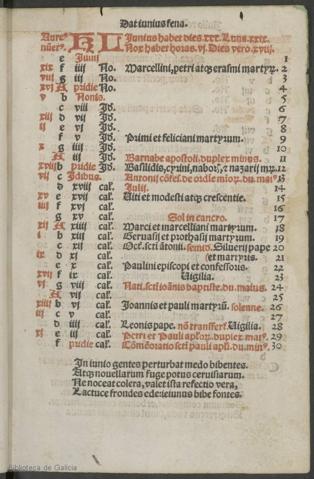 Dat iunius fena.
Aure⁹ KL Iunius habet dies.xxx. Luna.xxix.
nūer⁹. Nox habet horas.vj. Dies vero.xviij.
e Junij 1
xix f iiij No. Marcellini, petri atq3 erasmi martyꝝ. 2
viij g iij No. 3
xvj A pridie No. 4
v b Nonis. 5
c viij Id. 6
d vij Id. 7
e vj Id. 8
f v Id. Primi et feliciani martyrum. 9
g iiij Id. 10
A iij Id. Barnabe apostoli. duplex minus. 11
b pridie Id. Basilidis, cyrini, naboris, et nazarij mꝝ. 12
c Idibus. Antonij cōfes. de ordīe minoꝝ. du. mai⁹ 13
d xviij cal. Julij. 14
e xvij cal. Viti et modesti atq3 crescentie. 15
f xvj cal. 16
g xv cal. Sol in cancro. 17
A xiiij cal. Marci et marcelliani martyrum. 18
b xiij cal. Geruasij et prothasij martyrum. 19
c xij cal. Oct. scti ātonij. semio. Siluerij pape 20
d xj cal. et martyris. 21
e x cal. Paulini episcopi et confessoris. 22
f ix cal. Uigilia. 23
g viij cal. Nati. scti ioānis baptiste. du. maius. 24
A vij cal. 25
b vj cal. Joannis et pauli martyrū. solenne. 26
c v cal. 27
d iiij cal. Leonis pape. nō transfert⁻. Uigilia. 28
e iij cal. Petri et Pauli apl'oꝝ. duplex mai⁹. 29
f pridie cal. Cōmēoratio scti pauli apl'i. du. min⁹. 30
In iunio gentes perturbat medo bibentes.
Atq3 nouellarum fuge potus ceruisiarum.
Ne noceat colera, valet ista refectio vera,
Lactuce frondes ede: ieiunus bibe fontes.
Biblioteca de Galicia